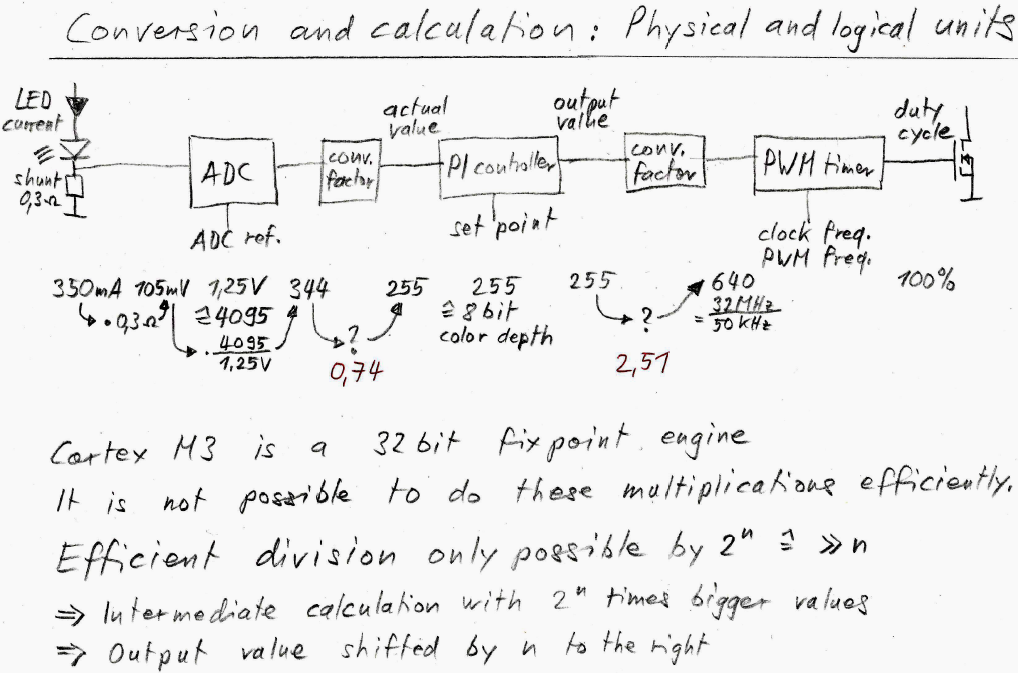 Conversion and calculation: Physical and logical units
LED
current
shunt
0,3Ω
ADC
ADC ref.
conv.
factor
actual
value
PI controller
set point
output
value
conv.
factor
PWM timer
clock freq.
PWM freq.
duty
cycle
350mA 105mV 1,25V 344 255 255 255 640 100%
· 0,3Ω
≙ 4095
· 4095
1,25V
?
0,74
≙ 8 bit
color depth
?
2,51
= 32 MHz
50 kHz
Cortex M3 is a 32 bit fixpoint engine
It is not possible to do these multiplications efficiently.
Efficient division only possible by 2ⁿ ≙ >>n
⇒ Intermediate calculation with 2ⁿ times bigger values
⇒ Output value shifted by n to the right